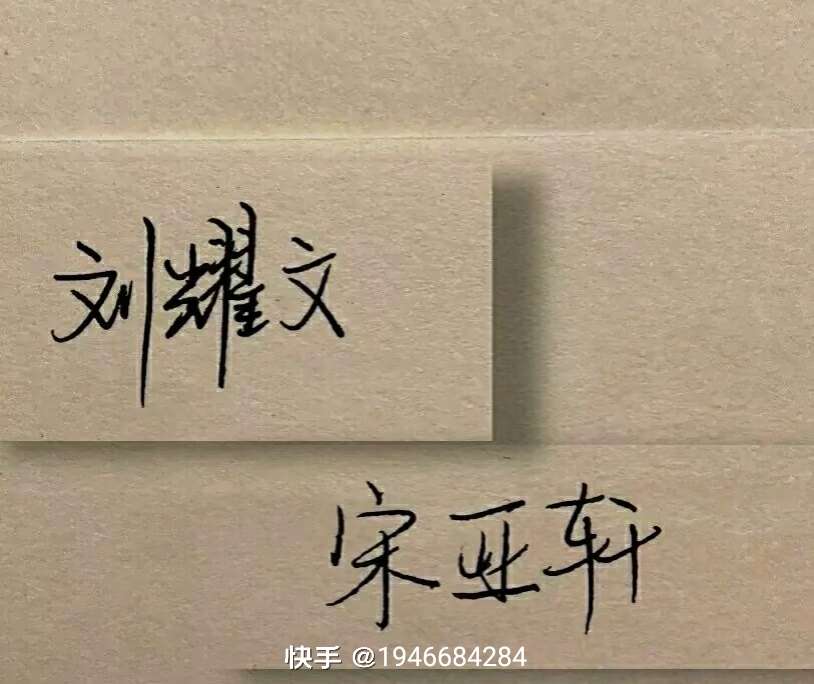 刘耀文
宋亚轩
快手 @1946684284